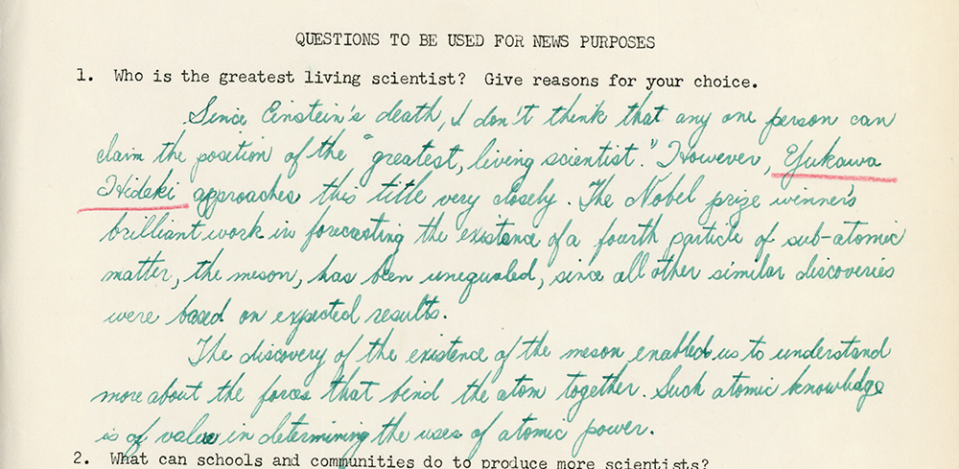 QUESTIONS TO BE USED FOR NEWS PURPOSES
1. Who is the greatest living scientist? Give reasons for your choice.
Since Einstein's death, I don't think that any one person can
claim the position of the "greatest, living scientist." However, Yukawa
Hideki approaches this title very closely. The Nobel prize winner's
brilliant work in forecasting the existence of a fourth particle of sub-atomic
matter, the meson, has been unequaled, since all other similar discoveries
were based on expected results.
The discovery of the existence of the meson enabled us to understand
more about the forces that bind the atom together. Such atomic knowledge
is of value in determining the uses of atomic power.
2. What can schools and communities do to produce more scientists?